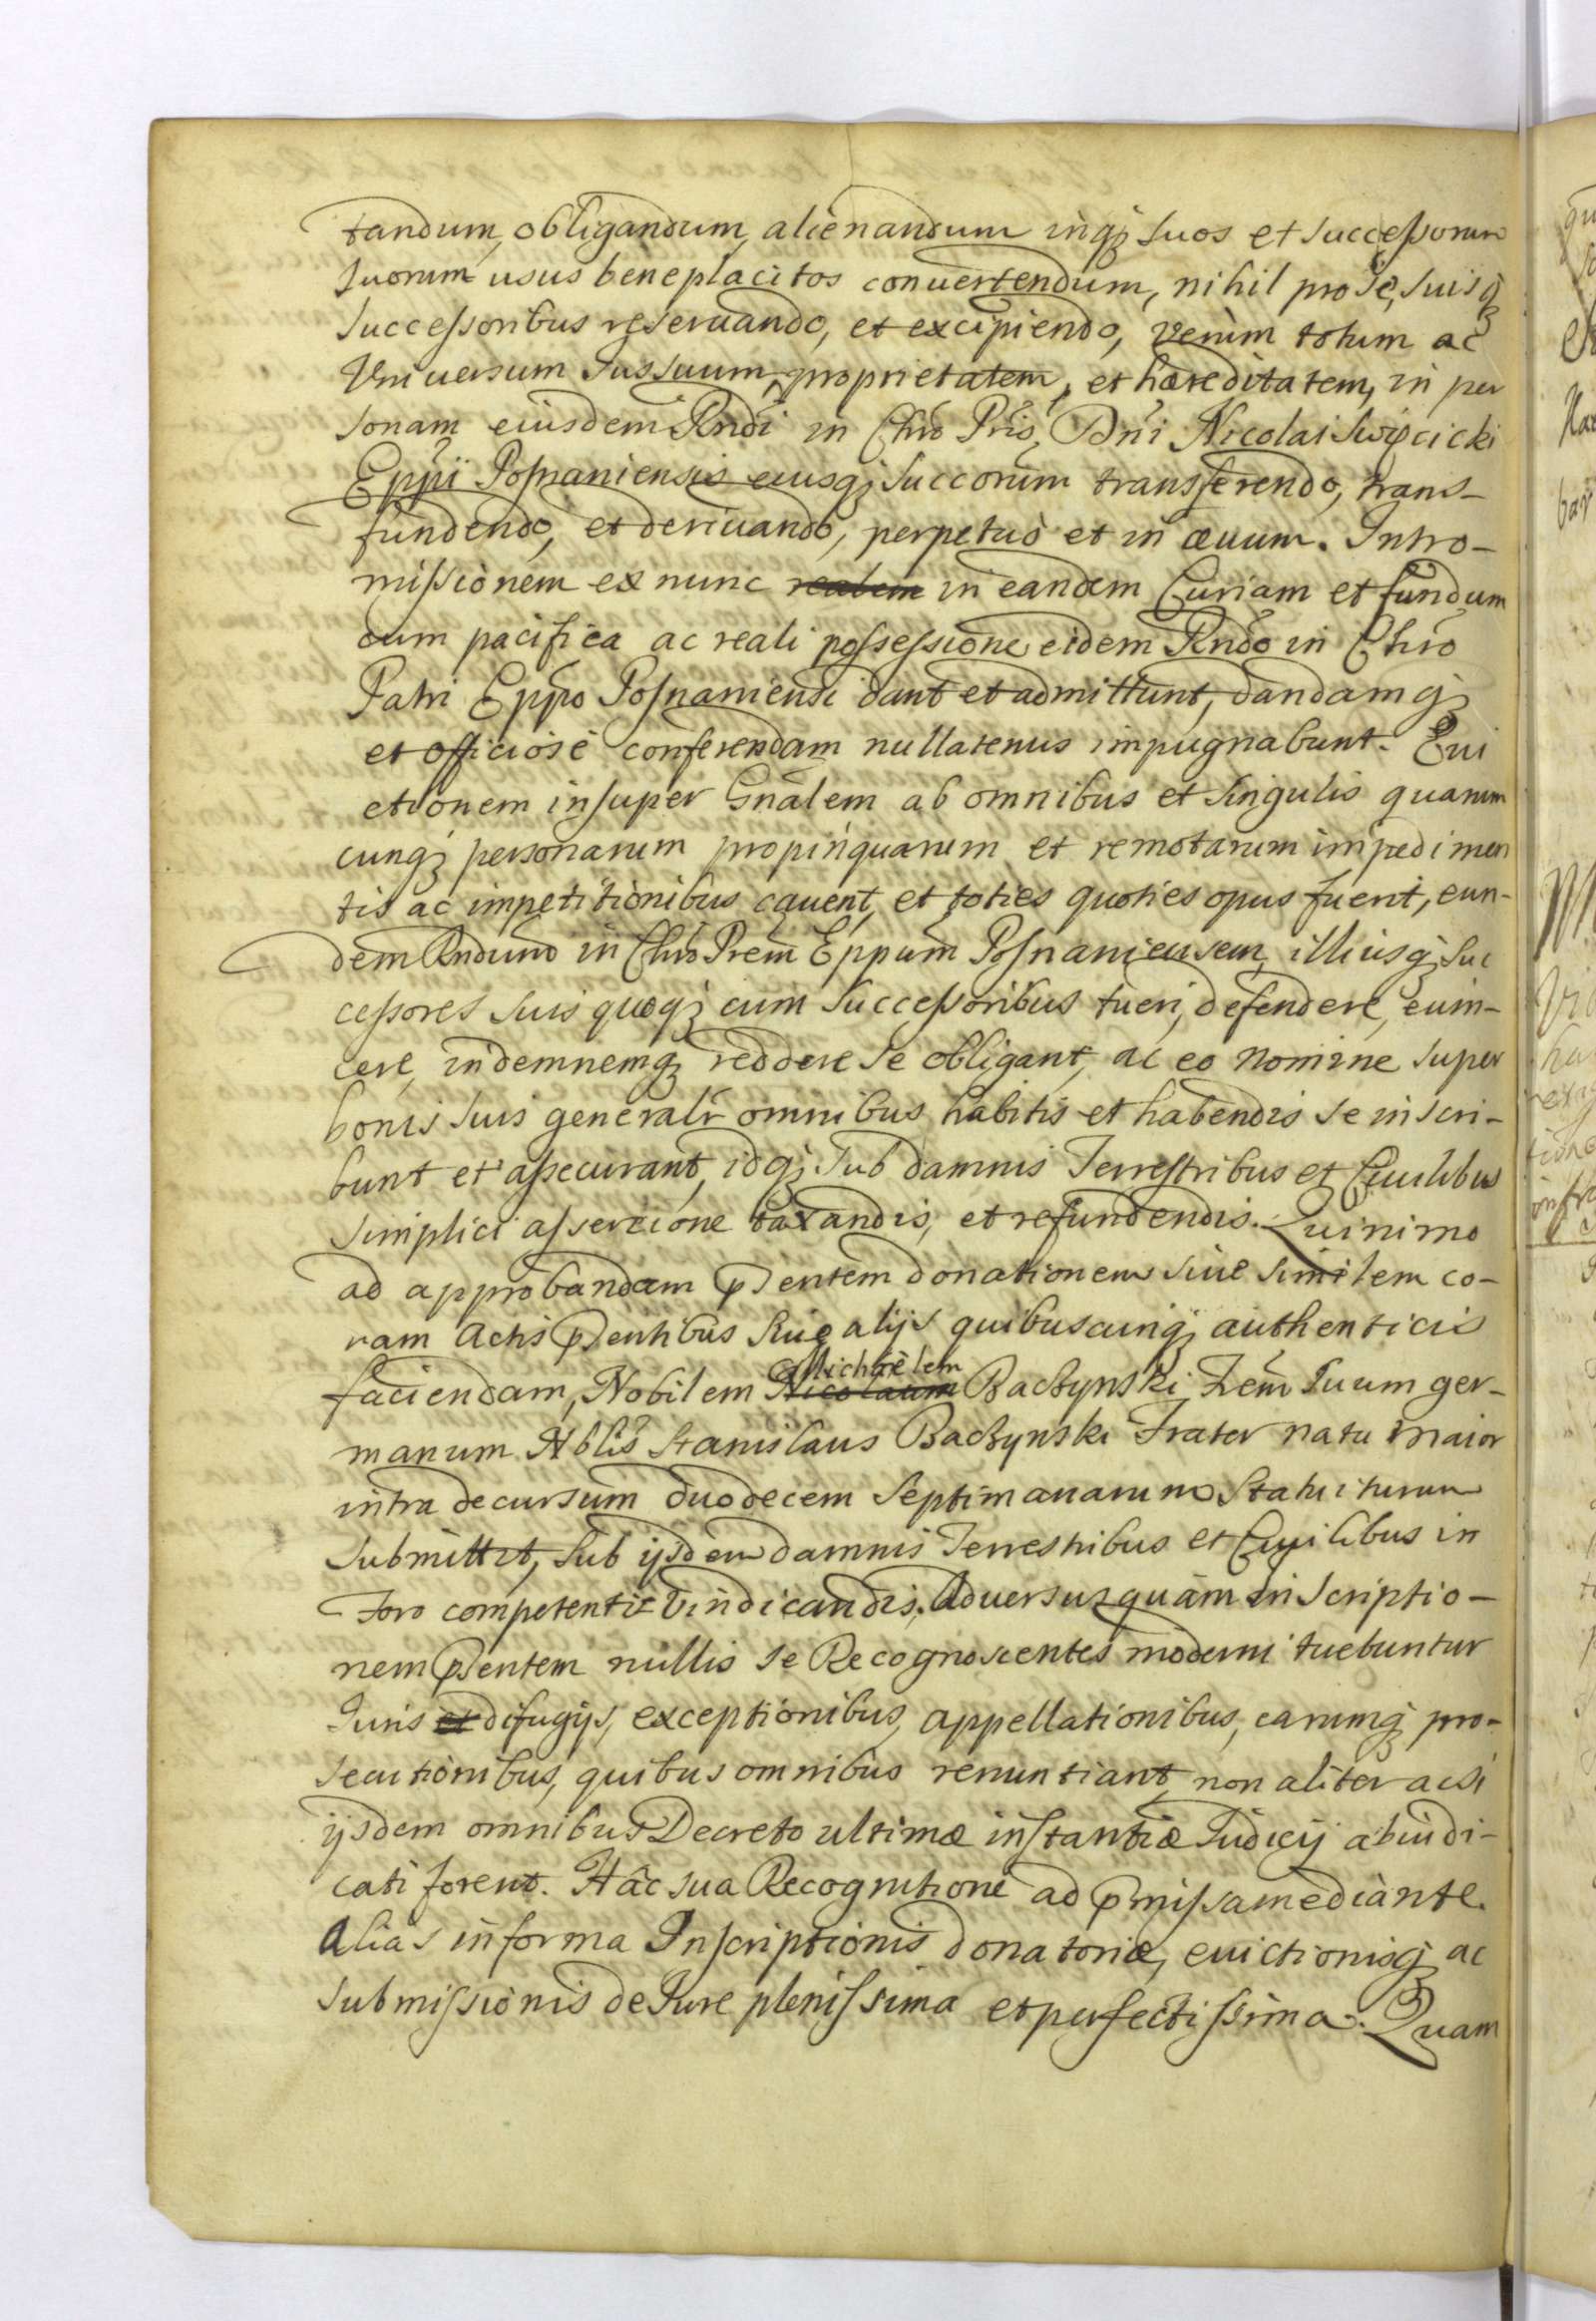 tandum, obligandum, alienandum inq; suos et successorum
suorum usus beneplacitos conuertendum, nihil pro se, suisq;
successoribus reseruando, et excipiendo, verùm totum ac
Vniuersum Jus suum, proprietatem, et hæreditatem, in per
sonam eiusdem Rndi in Chro Pris, Dni Nicolai Swięcicki
Eppi Posnaniensis eiusq; succorum transferendo, trans-
fundendo, et deriuando, perpetuò et in æuum. Intro-
missionem ex nunc realem in eandem Curiam et fundum
cum pacifica ac reali possessione eidem Rndo in Chro
Patri Eppo Posnaniensi dant et admittunt, dandamq;
et officiosè conferendam nullatenus impugnabunt. Eui
ctionem insuper Gnalem ab omnibus et singulis quarum
cunq; personarum propinquarum et remotarum impedimen
tis ac impetitionibus cauent, et toties quoties opus fuerit, eun-
dem Rndum in Chro Prem Eppum Posnaniensem, illiusq; suc
cessores suis quoq; cum successoribus tueri, defendere, euin-
cere, indemnemq; reddere se obligant, ac eo nomine super
bonis suis generalr omnibus habitis et habendis se inscri-
bunt et assecurant, idq; sub damnis Terrestribus et Ciuilibus
simplici assercione taxandis, et refundendis. Quinimo
ad approbandam pñtentem donationem siue similem co-
ram Actis pñtentibus siue alijs quibuscunq; authenticis
faciendam, Nobilem Nicolaum Michaëlem Baczynski frem suum ger-
manum Nblis Stanislaus Baczynski Frater natu maior
intra decursum duodecem septimanarum statuiturum
submittit, sub ijsdem damnis Terrestribus et Ciuilibus in
Foro competenti vindicandis. Aduersus quàm inscriptio-
nem pñtentem nullis se Recognoscentes moderni tuebuntur
Juris et difugijs, exceptionibus, appellationibus, earumq; pro-
secutionibus, quibus omnibus renuntiant, non aliter acsi
ijsdem omnibus Decreto ultimæ instantiæ Judicij abiudi-
cati forent. Hâc sua Recognitione ad pmissa mediante.
Alias in forma Inscriptionis donatoriæ, euictionisq; ac
submissionis de Jure plenissima et perfectissima. Quam